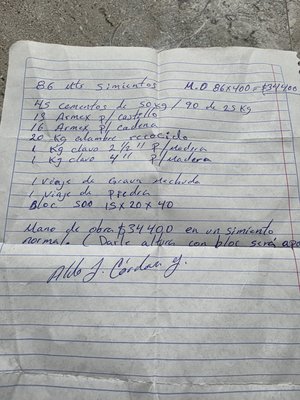 86 mts Simientos M.O 86x400 = $34400
45 cementos de 50kg / 90 de 25kg
13 Armex p/ castillo
16 Armex p/ cadena
20 Kg alambre recocido
1 Kg clavo 2 1/2" p/madera
1 Kg clavo 4" p/madera
1 Viaje de Grava
1 Viaje de Piedra
Bloc 500 15x20x40
Mano de obra $34400 en un simiento
normal. (Darle altura con bloc será
Aldo J. Córdova J.